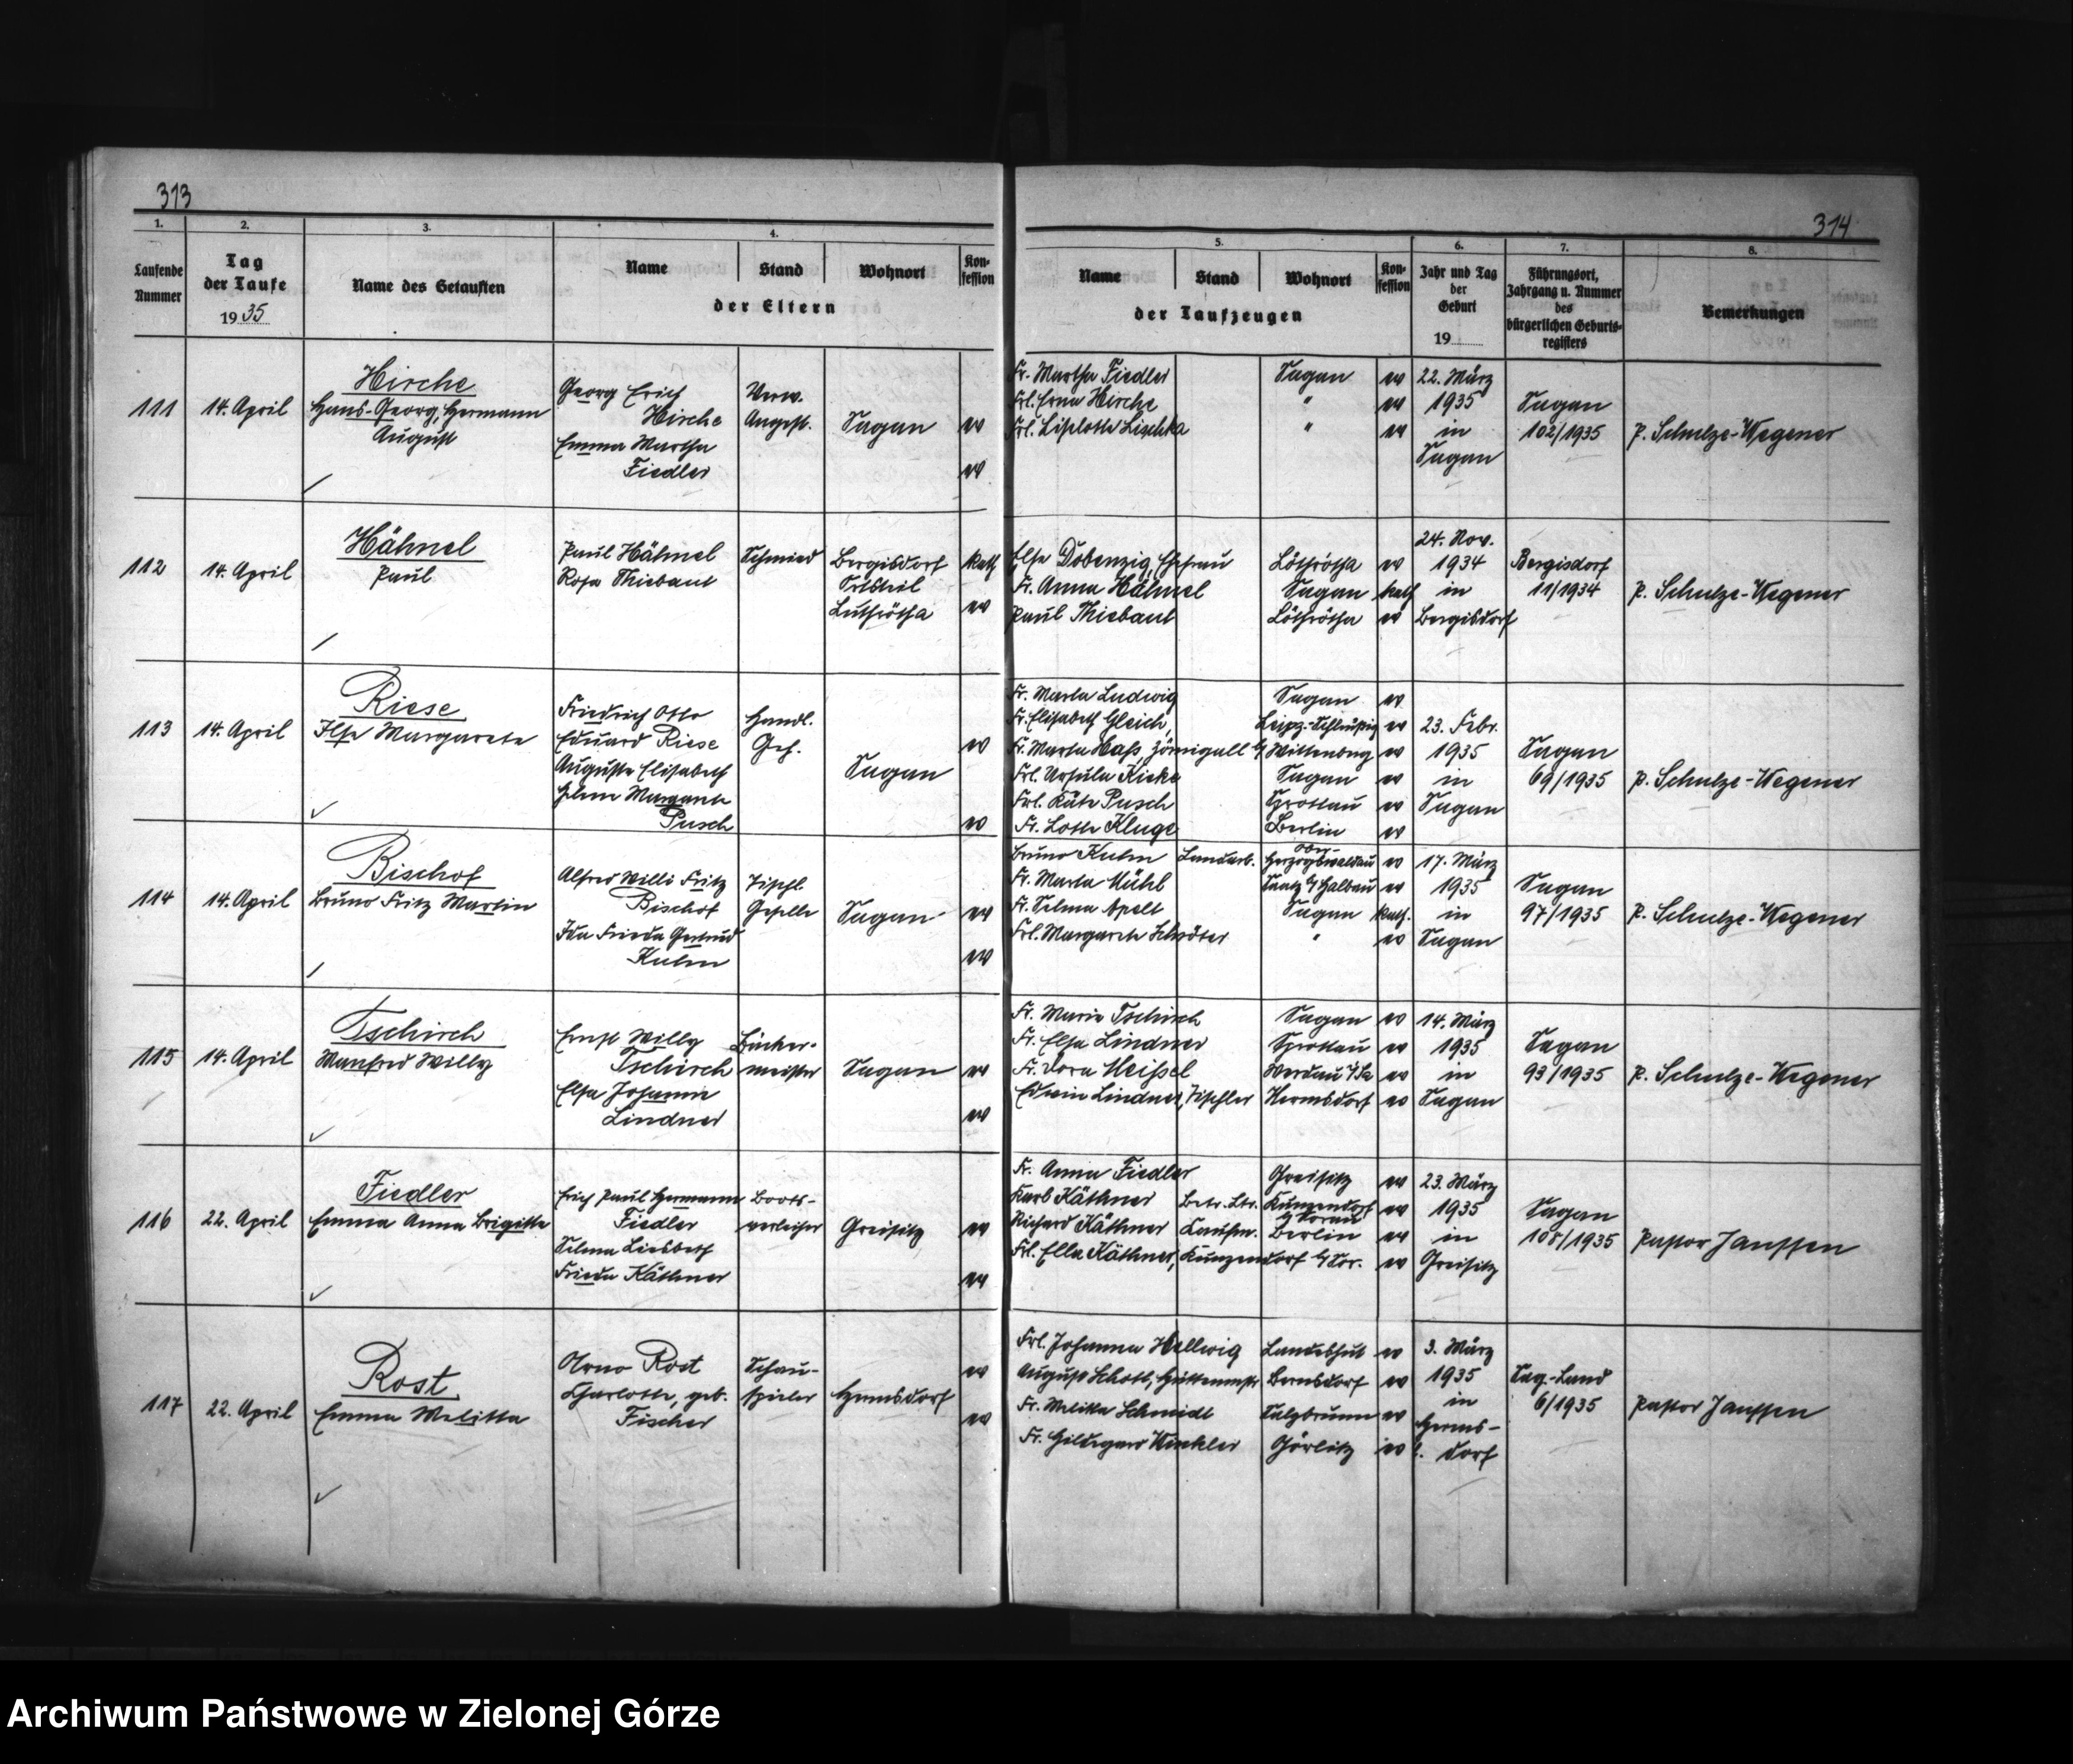 313
314
1.
2.
3.
4.
5.
6.
7.
8.
Laufende Nummer
Tag der Taufe 1935
Name des Getauften
Name
Stand
Wohnort
Konfession
der Eltern
Name
Stand
Wohnort
Konfession
der Taufzeugen
Jahr und Tag der Geburt 19
Führungsort, Jahrgang u. Nummer des bürgerlichen Geburtsregisters
Bemerkungen
111
14. April
Hirche
Hans-Georg, Hermann
August
Georg Erich
Hirche
Emma Martha
Fiedler
Verw.
Angest.
Sagan
ev
ev
Fr. Martha Fiedler Sagan ev
Frl. Erna Hirche " ev
Frl. Liselotte Lischka " ev
22. März
1935
in
Sagan
Sagan
102/1935
P. Schulze-Wegener
112
14. April
Hähnel
Paul
Paul Hähnel
Rosa Thiebaut
Schmied
Bergisdorf
Ortsteil
Luthrötha
kath
ev
Else Dobenzig, Ehefrau Löthrötha ev
Fr. Anna Hähnel Sagan kath
Paul Thiebaut Löthrötha ev
24. Nov.
1934
in
Bergisdorf
Bergisdorf
11/1934
P. Schulze-Wegener
113
14. April
Riese
Ilse Margarete
Friedrich Otto
Eduard Riese
Auguste Elisabeth
Helene Margarete
Pusch
Handl.
Geh.
Sagan
ev
ev
Fr. Marta Ludwig Sagan ev
Fr. Elisabeth Gleich, Leipz.-Schleußig ev
Fr. Marta Hass, Zörnigall b/ Wittenberg ev
Frl. Ursula Kieke Sagan ev
Frl. Käte Pusch Sprottau ev
Fr. Lotte Kluge Berlin ev
23. Febr.
1935
in
Sagan
Sagan
69/1935
P. Schulze-Wegener
114
14. April
Bischof
Bruno Fritz Martin
Alfred Willi Fritz
Bischof
Ida Frieda Gertrud
Kuhm
Tischl.
Geselle
Sagan
ev
ev
Bruno Kuhm Landarb. Ober-Herzogswaldau ev
Fr. Marta Mühl b/ Halbau ev
Fr. Selma Apelt Sagan kath.
Frl. Margarete Schröter " ev
17. März
1935
in
Sagan
Sagan
97/1935
P. Schulze-Wegener
115
14. April
Tschirch
Manfred Willy
Ernst Willy
Tschirch
Elsa Johanne
Lindner
Bäcker-
meister
Sagan
ev
ev
Fr. Marie Tschirch Sagan ev
Fr. Elsa Lindner Sprottau ev
Fr. Dora Meißel Werdau i/Sa ev
Edwin Lindner, Tischler Hermsdorf ev
14. März
1935
in
Sagan
Sagan
93/1935
P. Schulze-Wegener
116
22. April
Fiedler
Emma Anna Brigitte
Erich Paul Hermann
Fiedler
Selma Liesbeth
Frieda Käthner
Boots-
verleiher
Greisitz
ev
ev
Fr. Anna Fiedler Greisitz ev
Karl Käthner Betr. Ltr. Kunzendorf b/ Sorau ev
Richard Käthner Kaufm. Berlin ev
Frl. Ella Käthner, Kunzendorf b/ Sor. ev
23. März
1935
in
Greisitz
Sagan
108/1935
Pastor Janssen
117
22. April
Rost
Emma Melitta
Arno Rost
Charlotte, geb.
Fischer
Schau-
spieler
Hermsdorf
ev
ev
Frl. Johanna Hellwig Landeshut ev
August Schott, Hüttenmstr Bernsdorf ev
Fr. Melitta Schmidt Salzbrunn ev
Fr. Hildegard Winkler Görlitz ev
3. März
1935
in
Herms-
dorf
Sag.-Land
6/1935
Pastor Janssen
Archiwum Państwowe w Zielonej Górze